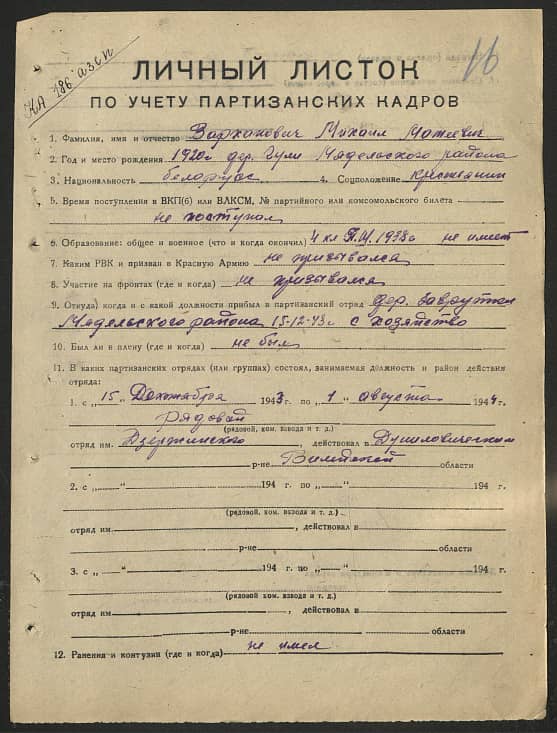 НА 186 азсп
16
ЛИЧНЫЙ ЛИСТОК
ПО УЧЕТУ ПАРТИЗАНСКИХ КАДРОВ
1. Фамилия, имя и отчество Варханович Михаил Матеевич
2. Год и место рождения 1920г дер. Гули Мядельского района
3. Национальность белорус 4. Соцположение крестьянин
5. Время поступления в ВКП(б) или ВЛКСМ, № партийного или комсомольского билета
не поступал
6. Образование: общее и военное (что и когда окончил) 4 кл 1938г не имеет
7. Каким РВК и призван в Красную Армию не призывался
8. Участие на фронтах (где и когда) не призывался
9. Откуда, когда и с какой должности прибыл в партизанский отряд дер.
Мядельского района 15-12-43г с хозяйство
10. Был ли в плену (где и когда) не был
11. В каких партизанских отрядах (или группах) состоял, занимаемая должность и район действия
отряда:
1. с „15" Декабря 1943 г. по „1" августа 1944 г.
рядовой
(рядовой, ком. взвода и т. д.)
отряд им. Дзержинского, действовал в Дуниловическом
р-не Вилейской области
2. с „ " 194 г. по „ " 194 г.
(рядовой, ком. взвода и т. д.)
отряд им , действовал в
р-не области
3. с „ " 194 г. по „ " 194 г.
(рядовой, ком. взвода и т. д.)
отряд им , действовал в
р-не области
12. Ранения и контузии (где и когда) не имел